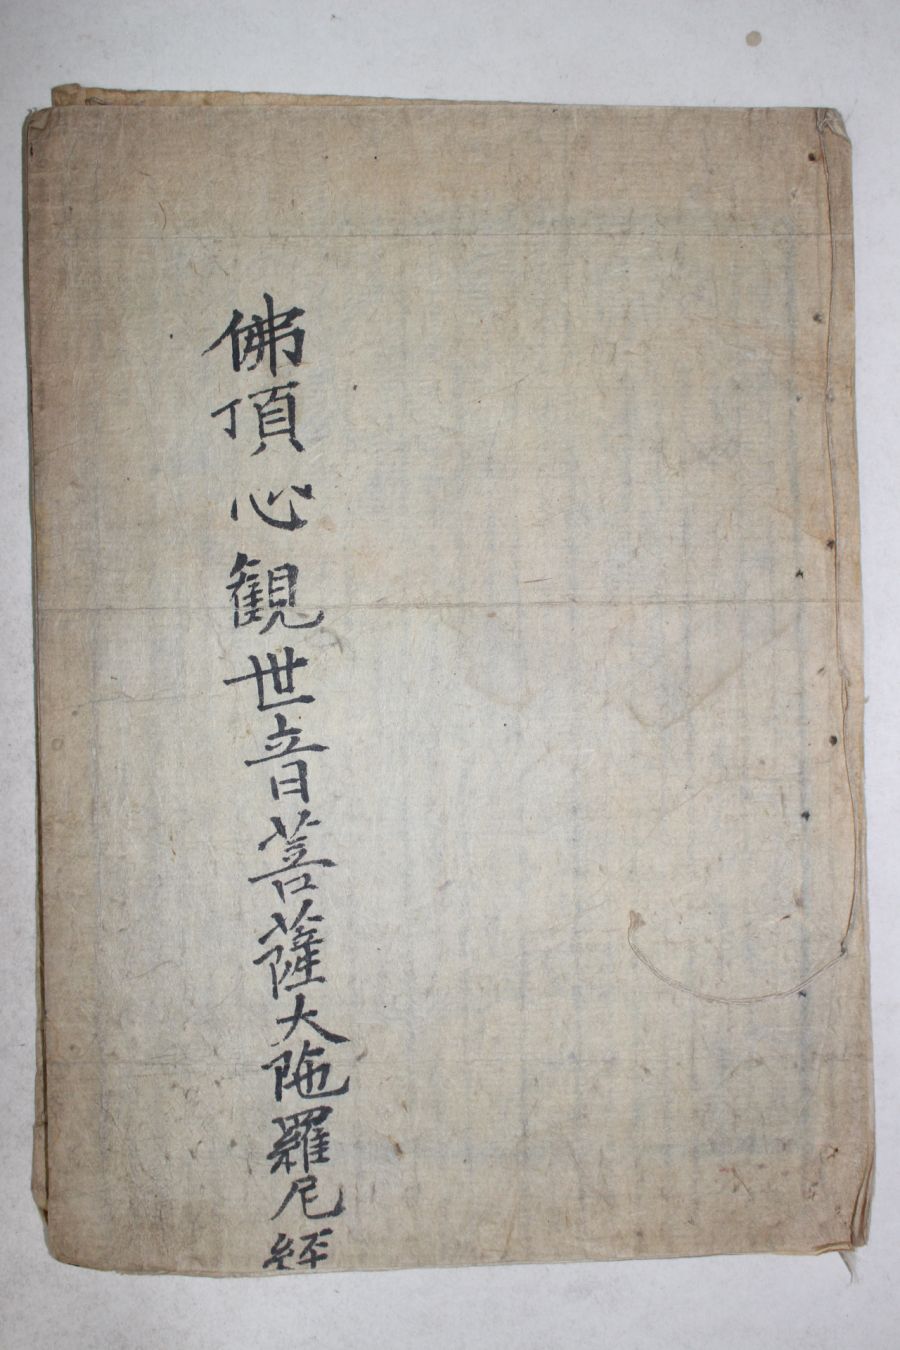 佛頂心観世音菩薩大陁羅尼經